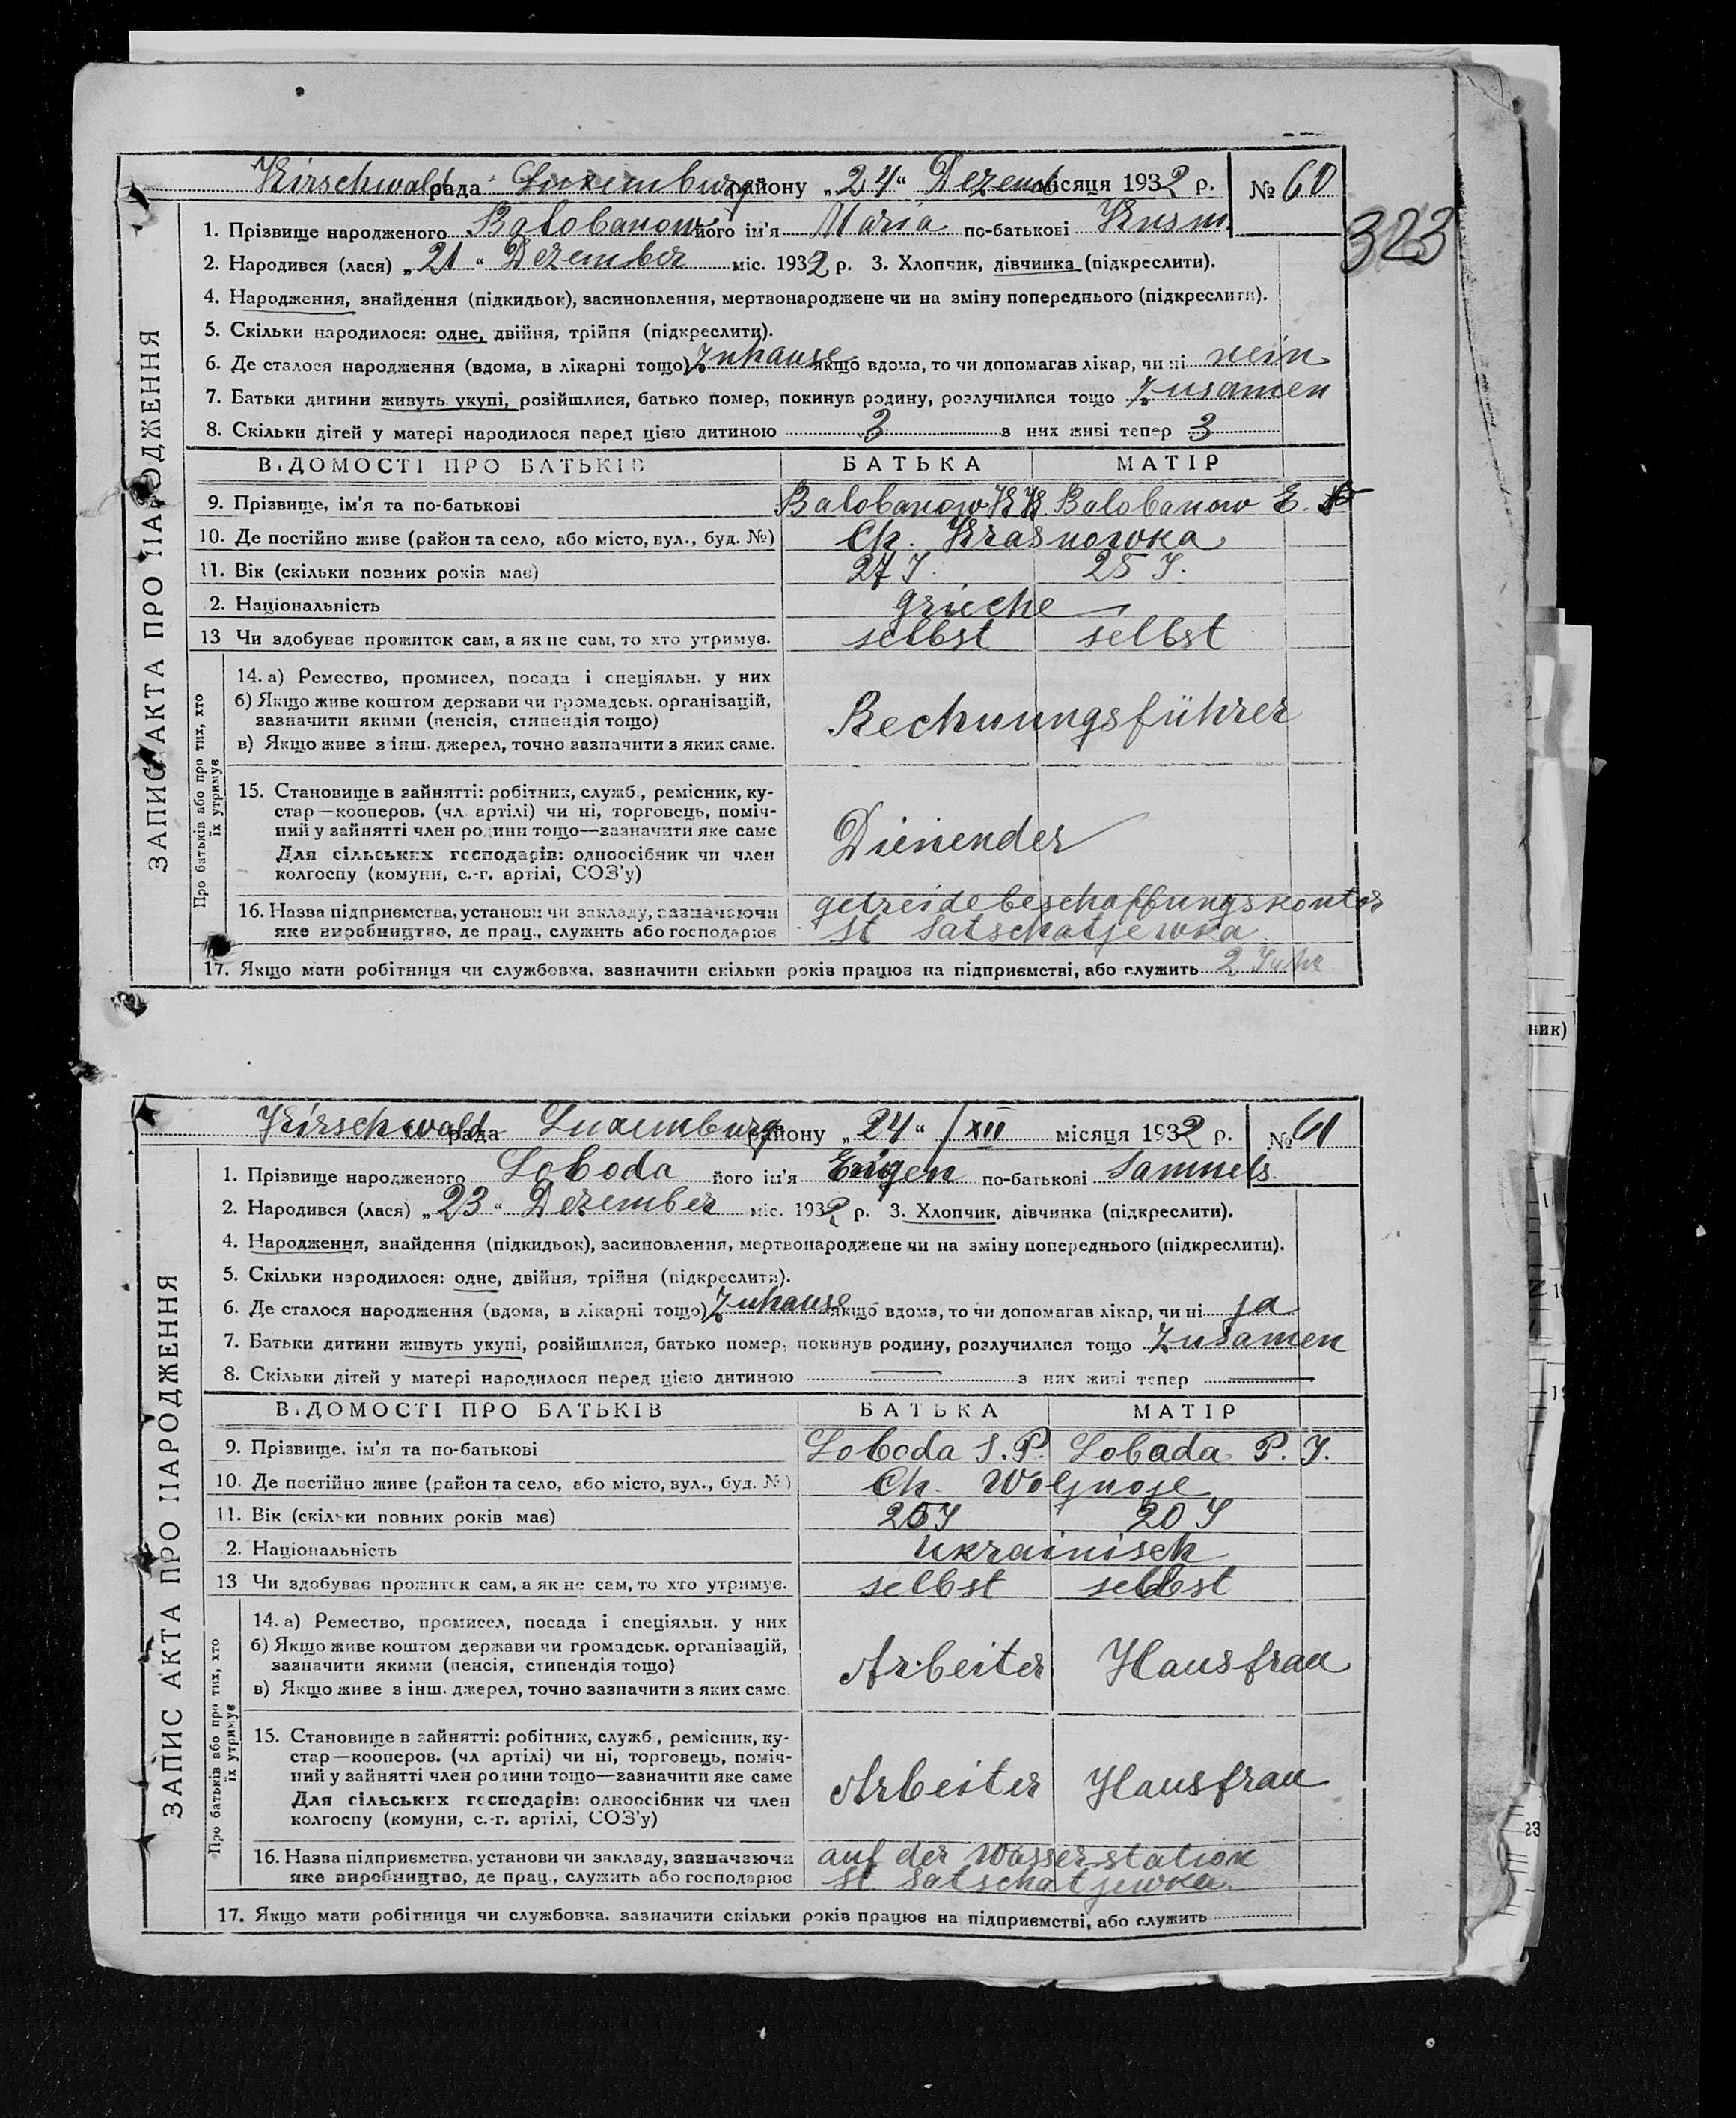 Kirschwald рада Luxemburg району „24“ Dezemb місяця 1932 р. № 60
323
1. Прізвище народженого Balobanow його ім'я Maria по-батькові Kusm.
2. Народився (лася) „21“ Dezember міс. 1932 р. 3. Хлопчик, дівчинка (підкреслити).
4. Народження, знайдення (підкидьок), засиновлення, мертвонароджене чи на зміну попереднього (підкреслити).
5. Скільки народилося: одне, двійня, трійня (підкреслити).
6. Де сталося народження (вдома, в лікарні тощо) Zuhause якщо вдома, то чи допомагав лікар, чи ні nein
7. Батьки дитини живуть укупі, розійшлися, батько помер, покинув родину, розлучилися тощо Zusamen
8. Скільки дітей у матері народилося перед цією дитиною 3 з них живі тепер 3
ВІДОМОСТІ ПРО БАТЬКІВ БАТЬКА МАТІР
9. Прізвище, ім'я та по-батькові Balobanow K K Balobanow E.
10. Де постійно живе (район та село, або місто, вул., буд. №) Ch. Krasnowka
11. Вік (скільки повних років має) 27 J. 25 J.
2. Національність grieche
13 Чи здобуває прожиток сам, а як не сам, то хто утримує. selbst selbst
Про батьків або про тих, хто
їх утримує
14. а) Ремество, промисел, посада і спеціяльн. у них
б) Якщо живе коштом держави чи громадськ. організацій,
зазначити якими (пенсія, стипендія тощо)
в) Якщо живе з інш. джерел, точно зазначити з яких саме.
Rechnungsführer
15. Становище в зайнятті: робітник, служб., ремісник, ку-
стар—кооперов. (чл. артілі) чи ні, торговець, поміч-
ний у зайнятті член родини тощо—зазначити яке саме
Для сільських господарів: одноосібник чи член
колгоспу (комуни, с.-г. артілі, СОЗ'у)
Dienender
16. Назва підприємства, установи чи закладу, зазначаючи getreidebeschaffungskontor
яке виробництво, де прац., служить або господарює st Satschatjewka
17. Якщо мати робітниця чи службовка, зазначити скільки років працює на підприємстві, або служить 2 Jahr
ЗАПИС АКТА ПРО НАРОДЖЕННЯ
Kirschwald рада Luxemburg району „24“ XII місяця 1932 р. № 61
1. Прізвище народженого Loboda його ім'я Eugen по-батькові Samuels
2. Народився (лася) „23“ Dezember міс. 1932 р. 3. Хлопчик, дівчинка (підкреслити).
4. Народження, знайдення (підкидьок), засиновлення, мертвонароджене чи на зміну попереднього (підкреслити).
5. Скільки народилося: одне, двійня, трійня (підкреслити).
6. Де сталося народження (вдома, в лікарні тощо) Zuhause якщо вдома, то чи допомагав лікар, чи ні ja
7. Батьки дитини живуть укупі, розійшлися, батько помер, покинув родину, розлучилися тощо Zusamen
8. Скільки дітей у матері народилося перед цією дитиною — з них живі тепер —
ВІДОМОСТІ ПРО БАТЬКІВ БАТЬКА МАТІР
9. Прізвище, ім'я та по-батькові Loboda S. P. Loboda P. J.
10. Де постійно живе (район та село, або місто, вул., буд. №) Ch. Woljnoje
11. Вік (скільки повних років має) 20 J
2. Національність ukrainisch
13 Чи здобуває прожиток сам, а як не сам, то хто утримує. selbst selbst
Про батьків або про тих, хто
їх утримує
14. а) Ремество, промисел, посада і спеціяльн. у них
б) Якщо живе коштом держави чи громадськ. організацій,
зазначити якими (пенсія, стипендія тощо)
в) Якщо живе з інш. джерел, точно зазначити з яких саме.
Arbeiter Hausfrau
15. Становище в зайнятті: робітник, служб., ремісник, ку-
стар—кооперов. (чл. артілі) чи ні, торговець, поміч-
ний у зайнятті член родини тощо—зазначити яке саме
Для сільських господарів: одноосібник чи член
колгоспу (комуни, с.-г. артілі, СОЗ'у)
Arbeiter Hausfrau
16. Назва підприємства, установи чи закладу, зазначаючи auf der Wasserstation
яке виробництво, де прац., служить або господарює st Satschatjewka
17. Якщо мати робітниця чи службовка, зазначити скільки років працює на підприємстві, або служить
ЗАПИС АКТА ПРО НАРОДЖЕННЯ
ник)
23